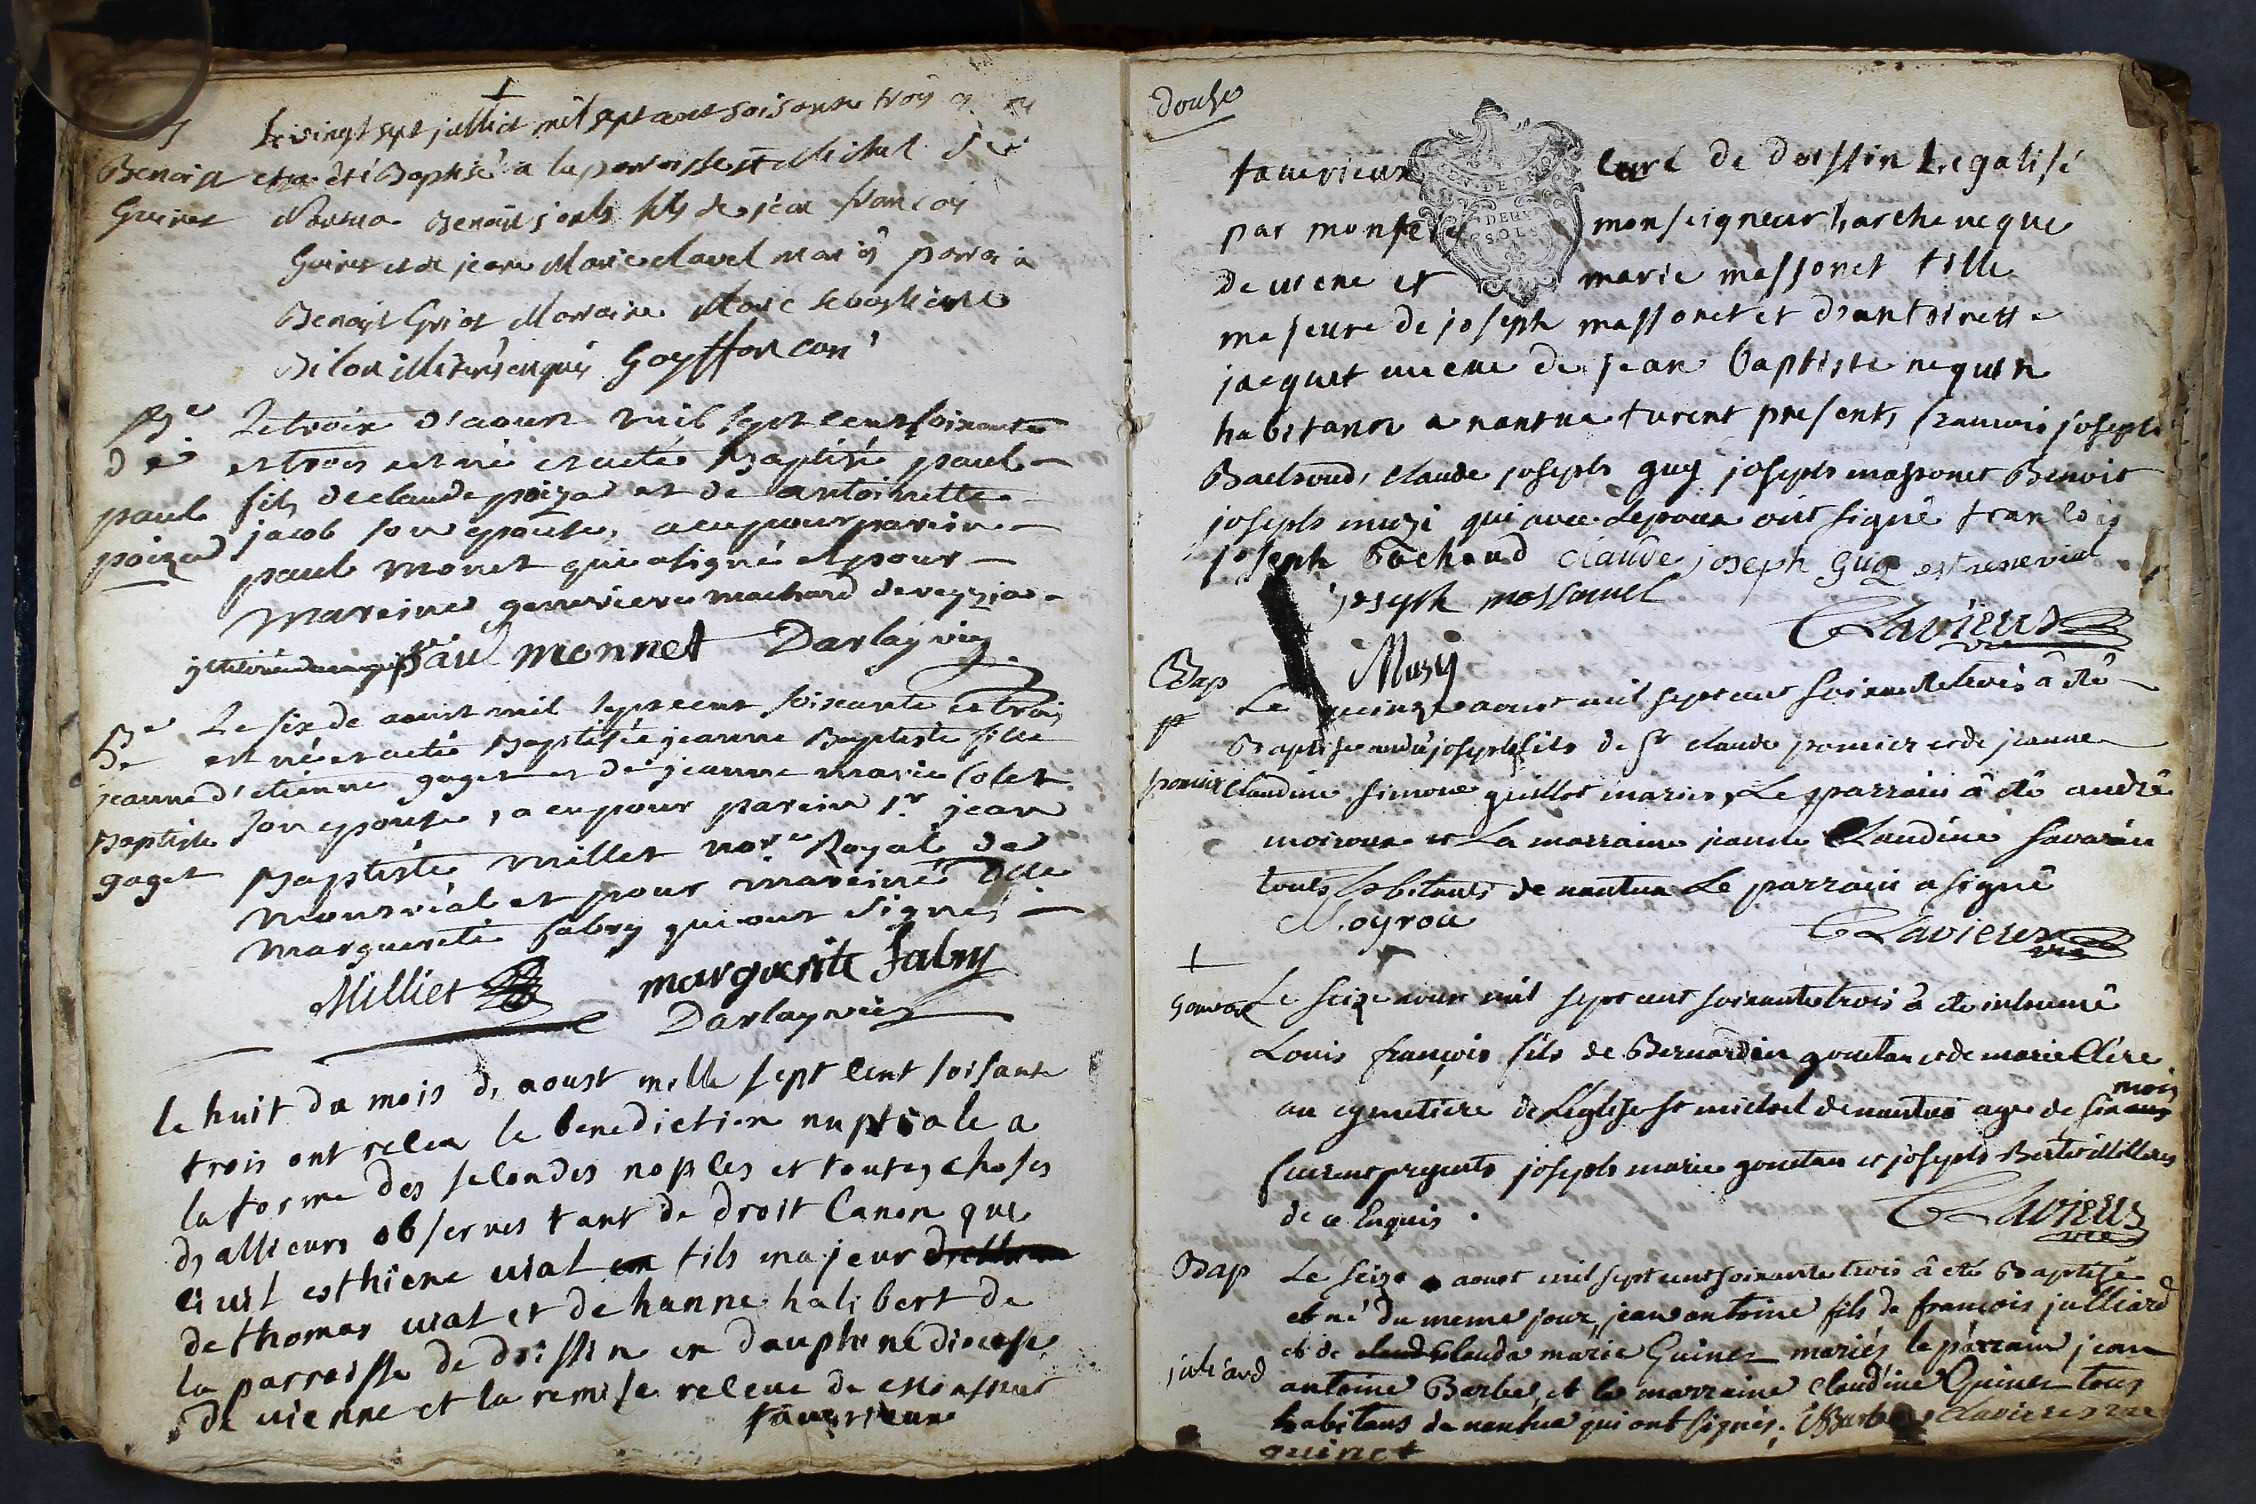 le vingt sept jullict mil sept cent soisante trois
Benoist et a été Baptisé a la paroisse st Michel
Guinet Nantua Benoist joseph fils de jean francois
Guinet et de jeane Marie clavel mariés
Benoist Griot Marraine Marie sebastienne
enquis Goyffon curé
Le trois d'aoust mil sept cent soixante
et trois est né et a eté Baptisé paul
paul fils de claude poizat et de antoinette
poizat jacob son epouse, a eu pour parein
paul monet qui a signé et pour
Mareine genevieve machard de veyzia
paul monnet Darlay vic
Le six de aoust mil sept cent soixante et trois
est né et a eté Baptisée jeanne Baptiste fille
jeanne d'etienne gaget et de jeanne marie
Baptiste son epouse, a eu pour parein sr jean
gaget Baptiste millet nore Royal de
monreál et pour mareine Dlle
marguerite fabry qui ont signé
Milliet marguerite fabry
Darlay vic
le huit du mois d, aoust mille sept cent soisante
trois ont releu le benediction nuptiale a
la forme des selondes nopses et toutes choses
d, allieurs observes tant de droit Canon que
civil esthiene vial fils majeur
de thomas vial et de hanne halibert de
la parroisse de doissin en dauphiné diocese
de vienne et la remise releue de monsieur
fauerieux
douse
fauerieux curé de doissin Legalisé
par monseig monseigneur harcheueque
de viene et marie massonet fille
majeure de joseph massonet et d'antoinette
jacquet uueue de jean baptiste nequin
habitant a nantua furent presents francois joseph
Bachoud, claude joseph guy joseph massonet Benoit
joseph muzi qui avec Lepoux ont signé francois
joseph bachoud claude joseph Guy estiene vial
joseph massonnet
Claviere vic
Musy
Bap Le quinze aoust mil sept cent soixante trois a été
Baptisé andré joseph fils de sr claude pomier et de jeanne
pomier Claudine simone guillot mariés, Le parrain a été andré
moiroux et La marraine jeanne Claudine savarin
touts habitants de nantua Le parrain a signé
Moyrou Claviere vic
Goutan Le seize aoust mil sept cent soixante trois a été inhumé
Louis françois fils de Bernardin gouttan et de marie Clere
mois
au cymetiere de L'eglise st michel de nantua agé de six ans
furent presents joseph marie gouttan et joseph illiteres
de ce Enquis. Claviere vic
Bap Le seize aoust mil sept cent soixante trois a été Baptisé
et né du meme jour, jean antoine fils de francois julliard
juliard et de Clauda marie Guinet mariés le parrain jean
antoine Barbe, et la marraine claudine Guinet tous
habitans de nantua qui ont signés. Barbe Claviere vic
guinet